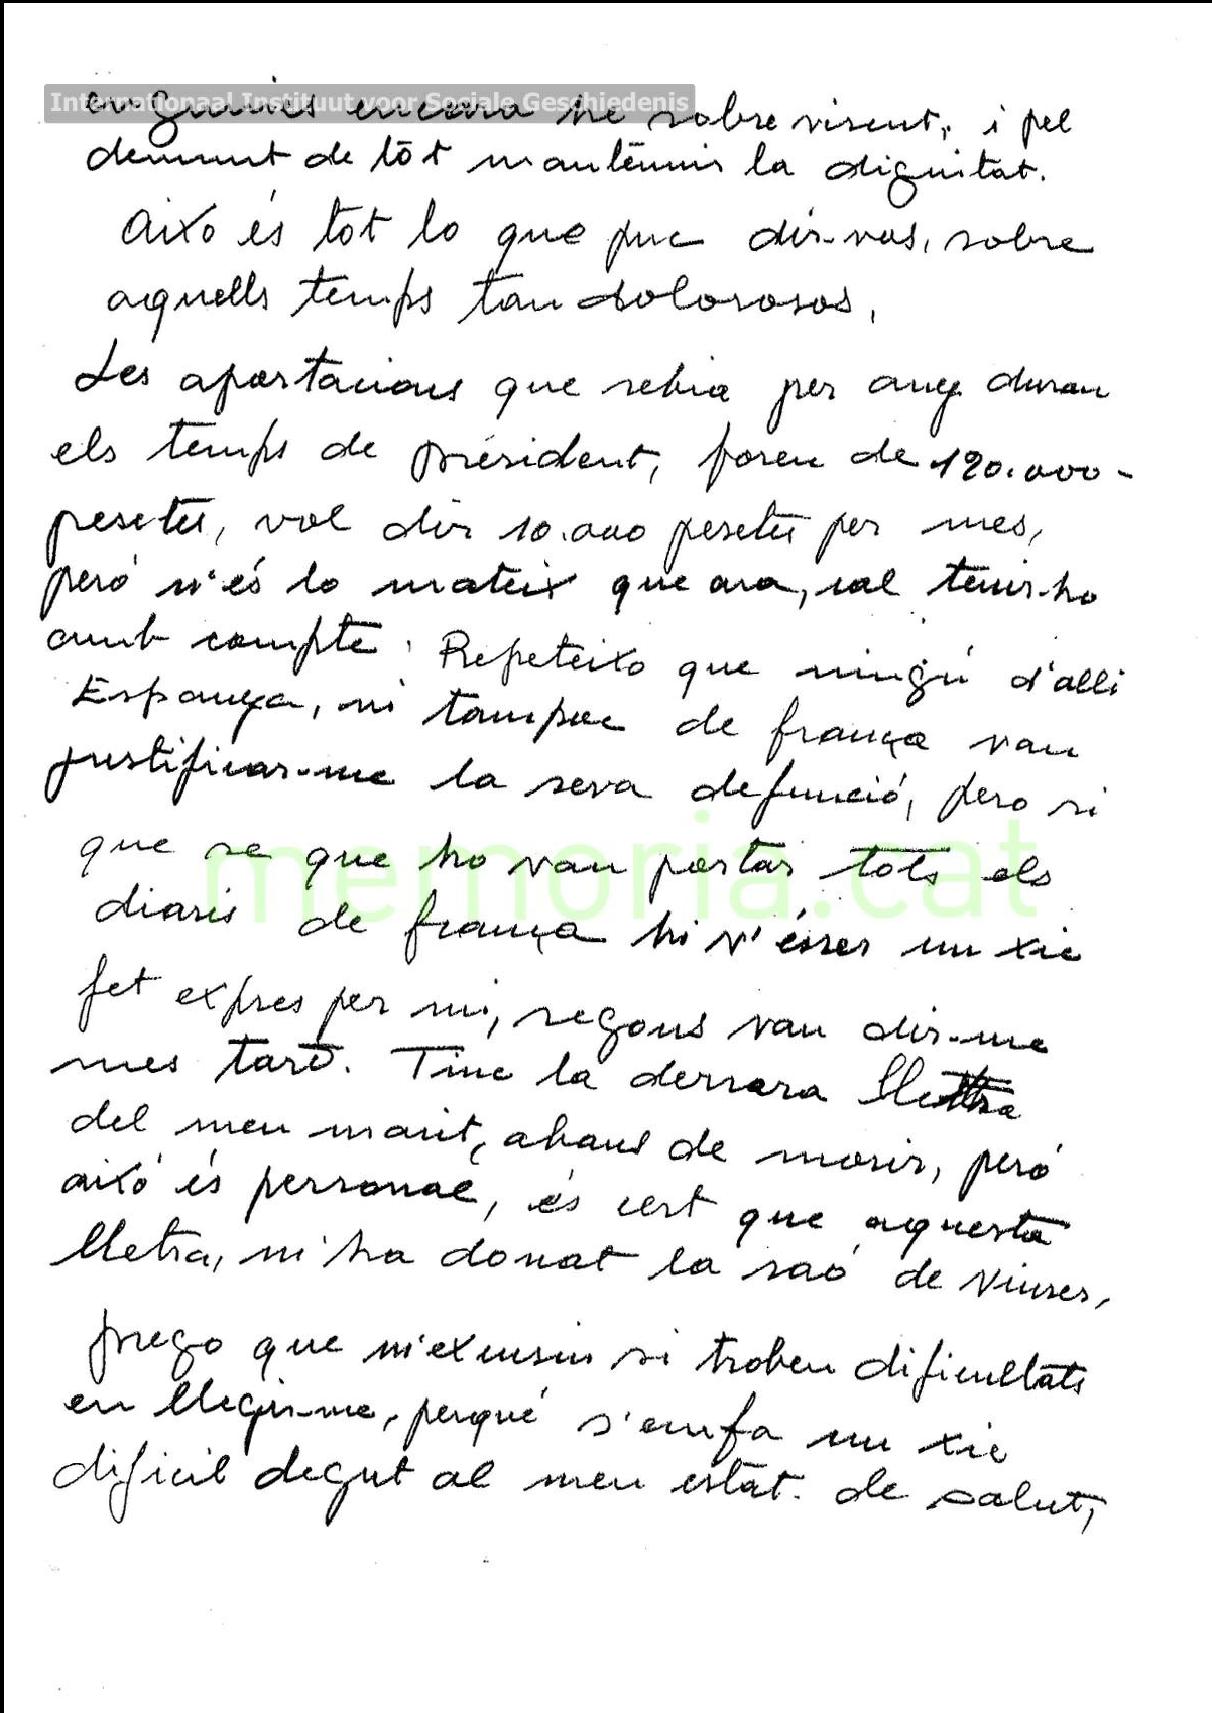 Internationaal Instituut voor Sociale Geschiedenis
angunies encara he sobreviscut, i pel
demunt de tót mantènnir la dignitat.
Aixo és tot lo que puc dir-vos, sobre
aquells temps tan dolorosos,
Les aportacions que rebia per any duran
els temps de président, foren de 120.000-
pesetes, vol dir 10.000 pesetes per mes,
peró n'és lo mateix que ara, cal tenir-ho
amb compte. Repeteixo que ningú d'alli
Espanya, ni tampoc de frança van
justificar-me la seva defunció, pero si
que se que ho van portar tots els
memoria.cat
diaris de frança hi v'ésser un xic
fet expres per mi, segons van dir-me
mes tard. Tinc la derrera lletra
del meu marit, abans de morir, peró
aixó és personal, és cert que aquesta
lletra, m'ha donat la raó de viurer,
prego que m'excusin si troben dificultats
en llegir-me, perqué s'emfa un xic
dificil degut al meu estat. de salut,